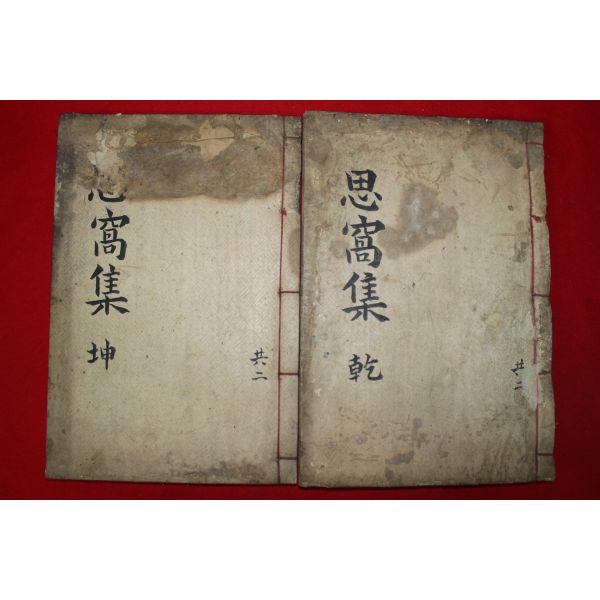 思窩集
乾
共二
思窩集
坤
共二